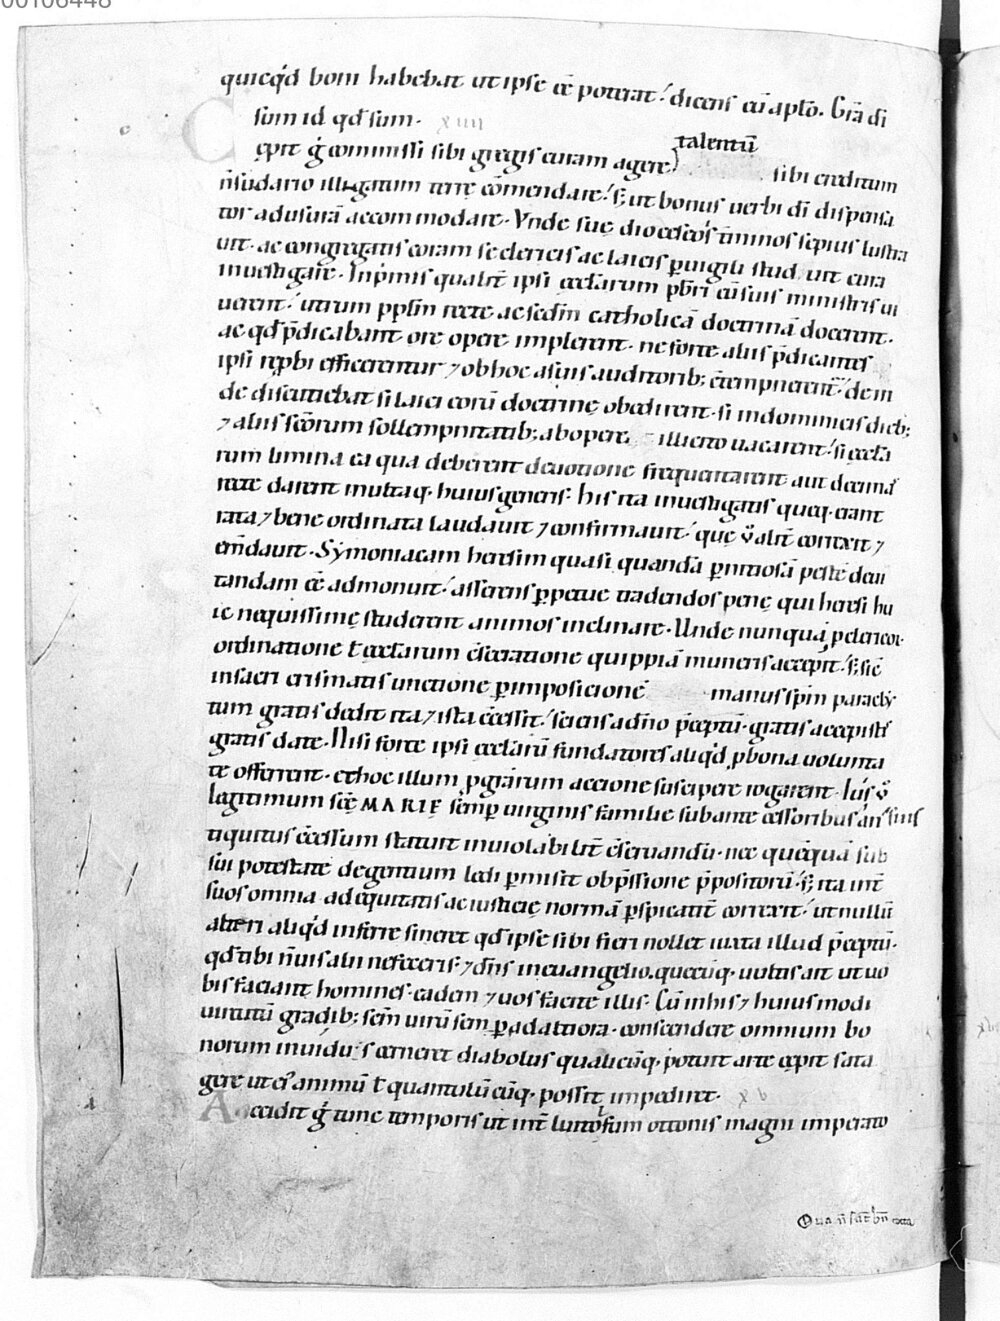 00106448
quicq̄d boni habebat ut ipse cē poterat.' dicens cū aplō. Grā di
sum id qđ sum. xiiii
talentū
Cępit ḡ commissi sibi gregis curam agere sibi creditum
n̄ sudario illigatum terrę cōmendare.' sꝫ ut bonus uerbi dī dispensa
tor ad usurā accommodare. Vnde suę dioceseos t̄minos sepius lustra
uit. ac congregatis coram se clericis ac laicis ꝑuigili stud uit cura
inuestigare. Inp̄mis qualit̄ ipsi ęcclarum pb̄ri cū suis ministris ui
uerent.' utrum pplm̄ recte ac sedm̄ catholicā doctrinā docerent.
ac qđ p̄dicabant ore opere implerent. ne forte aliis p̄dicantes
ipsi rep̄bi efficerentur ⁊ ob hoc a suis auditorib; c̄tempnerent̄.' dein
de discutiebat si laici eorū doctrinę obedirent. si in dominicis dieb;
⁊ aliis sc̄orum sollempnitatib; ab opere illicito uacarent.' si ęccla
rum limina ea qua deberent deuotione frequentarent aut decima
recte darent multaq. huius generis. his ita inuestigatis quęq. erant
rata ⁊ bene ordinata laudauit ⁊ confirmauit.' quę v̄ alit̄ correxit ⁊
em̄dauit. Symoniacam heresim quasi quandā ꝑnitiosā pestē deui
tandam eē admonuit.' asserens ꝑpetuę tradendos penę qui heresi hu
ic nequissimę studerent animos inclinare. Unde nunquā p clericor.
ordinatione ł ęcclarum c̄secratione quippiā muneris accepit.' sꝫ sic̄
in sacri crismatis unctione ꝑ imposicionē manus spm̄ paracly
tum gratis dedit ita ⁊ ista c̄cessit.' sciens a dn̄o p̄ceptū. gratis accepistis
gratis date. Nisi forte ipsi ęcclarū fundatores aliq̄d p bona uolunta
te offerrent. et hoc illum p grārum accione suscipere rogarent. Ius v̄
lagitimum scę MARIE semp̄ uirginis familię sub antecessoribus suis an
tiquitus c̄cessum statuit inuiolabilit̄ c̄seruandū. nec quēquā sub
sui potestate degentium ledi ꝑmisit obp̄ssione p̄positorū. sꝫ ita int̄
suos omnia ad ęquitatis ac iusticię normā ꝑspicacit̄ correxit.' ut nullū
alteri aliq̄d inferre sineret qđ ipse sibi fieri nollet iuxta illud p̄ceptū.
qđ tibi n̄ uis alii ne feceris. ⁊ dn̄s in euangelio. quecūq. uultis ait ut uo
bis faciant homines. eadem ⁊ uos facite illis. Cū in his ⁊ huius modi
uirtutū gradib; scm̄ uirū semꝑ ad altiora conscendere omnium bo
norum inuidus cerneret diabolus qualicūq. potuit arte cępit sata
gere ut ei animū ł quantulūcūq. posset impediret. xv
Accidit ḡ tunc temporis ut int̄ luitolfum ottonis magni imperato